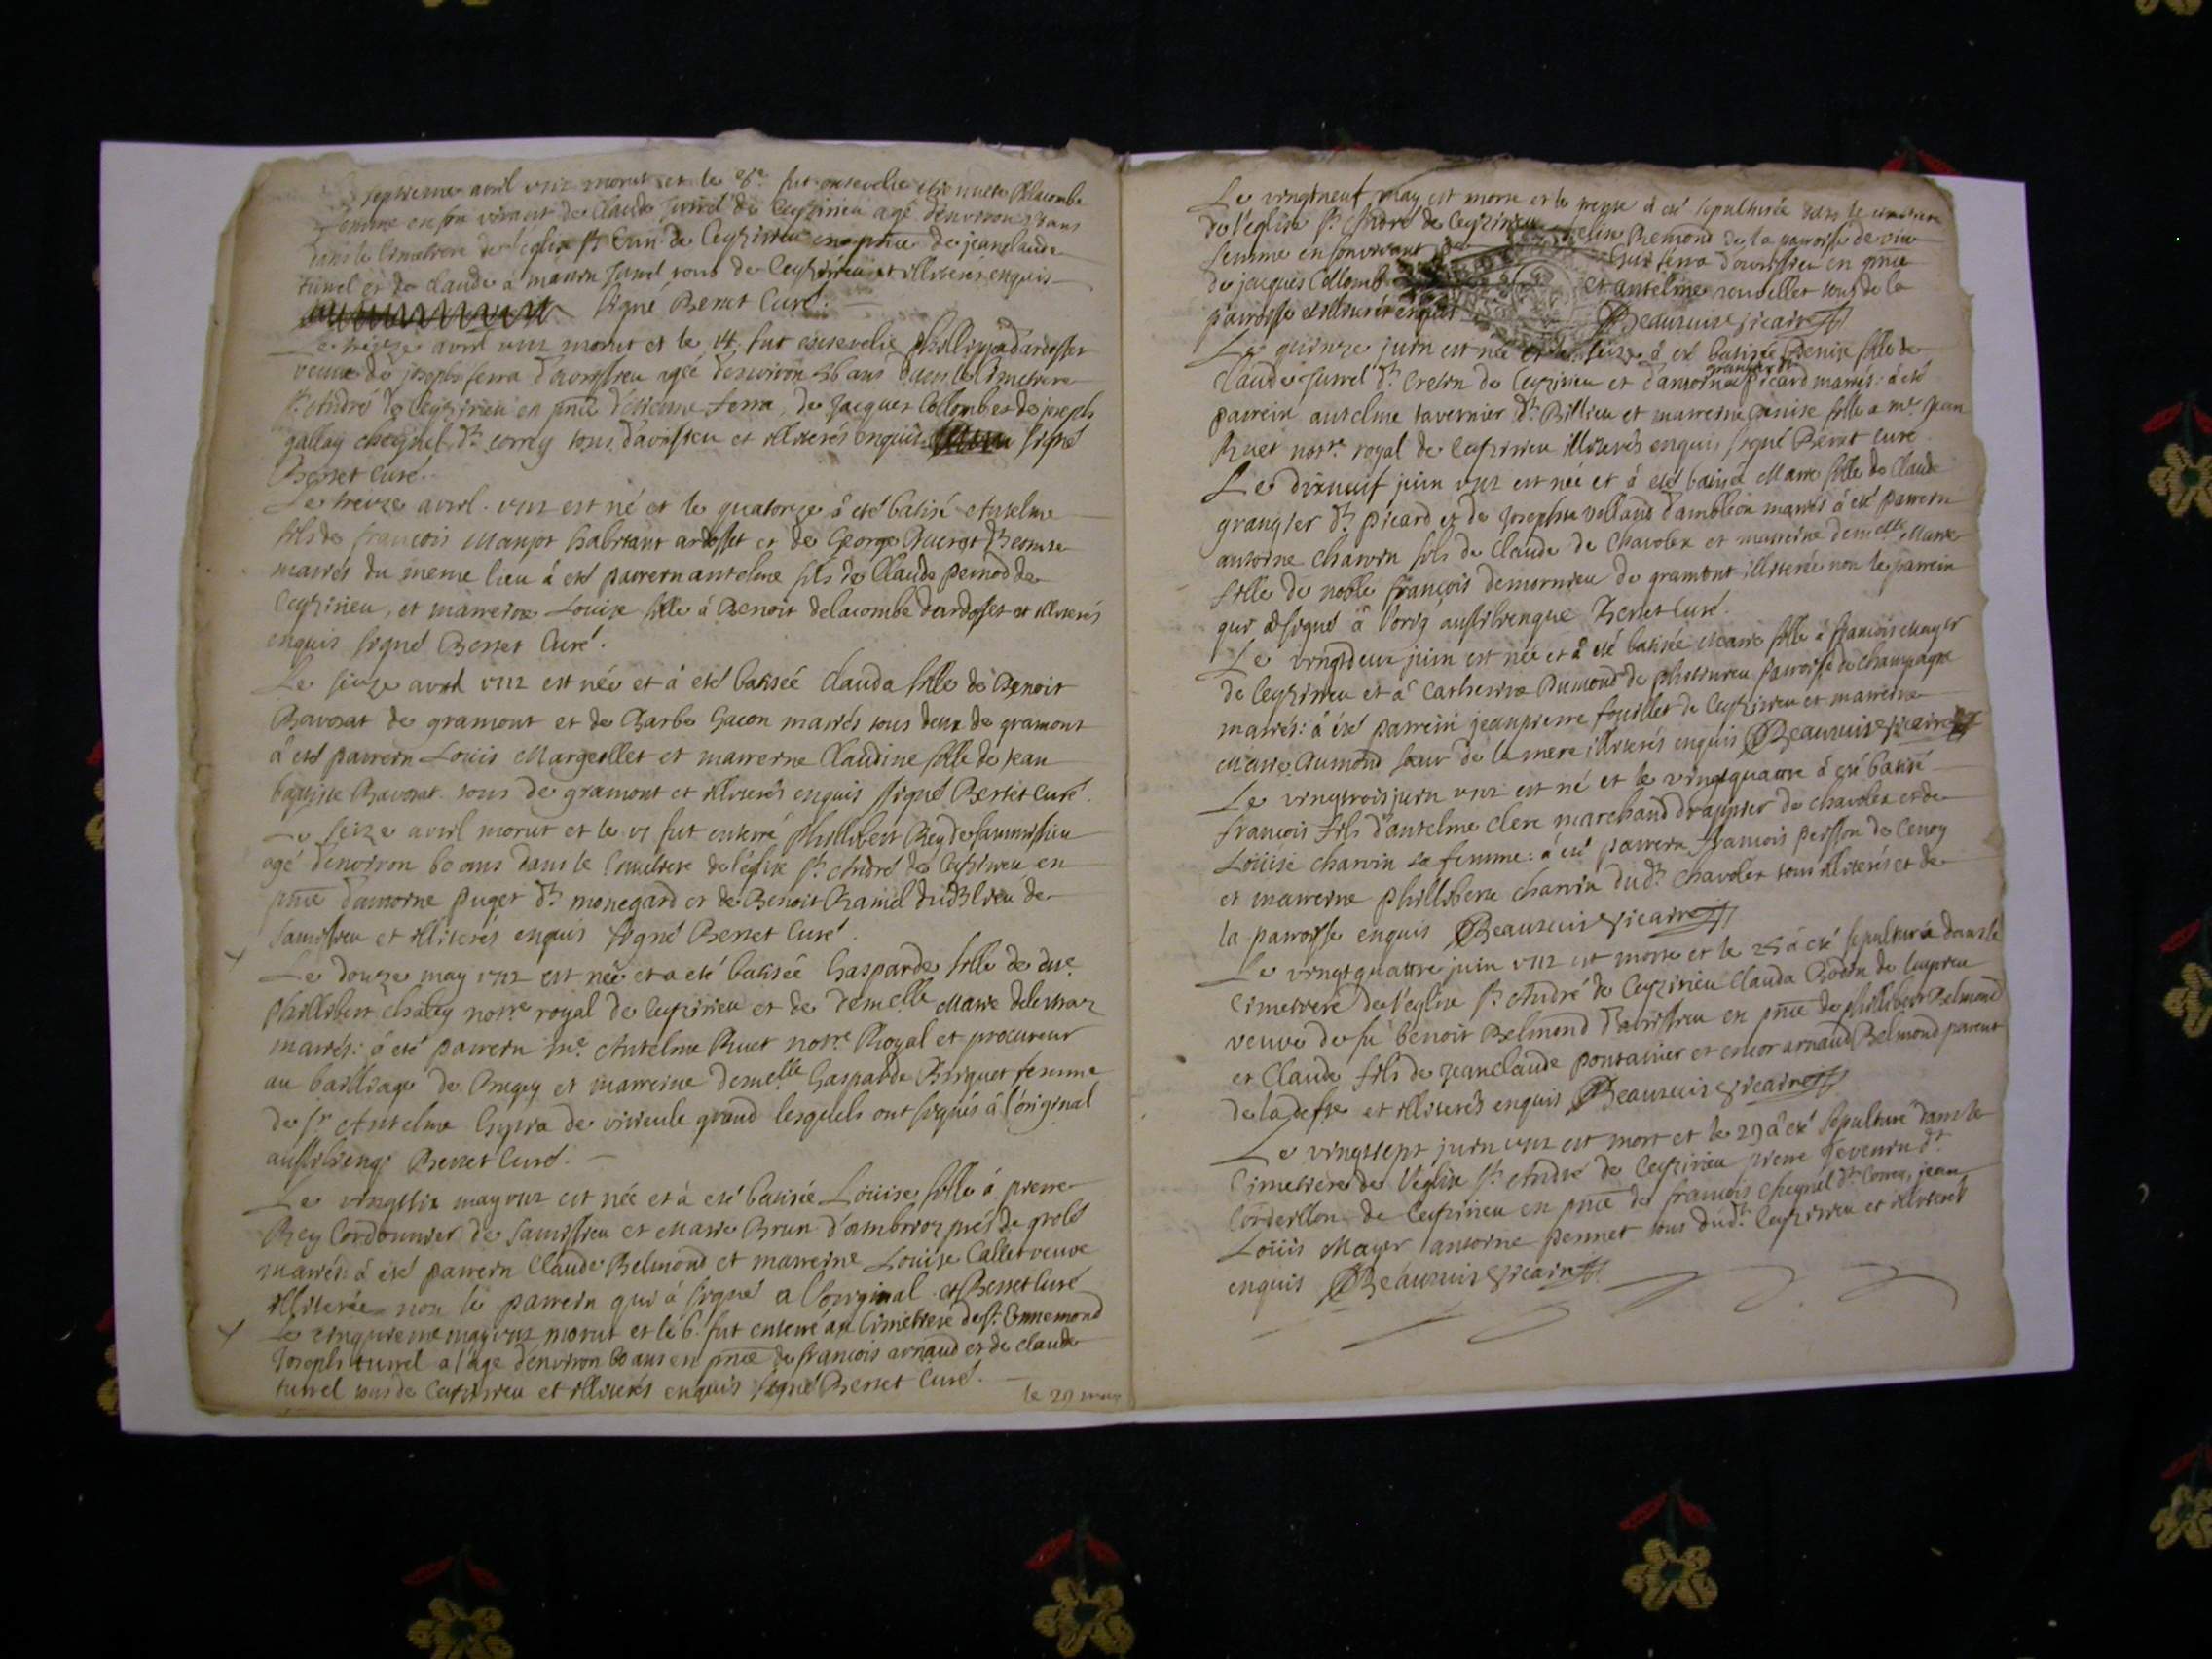 septieme avril 1712 morut et le 8e fut ensevelie
femme en son vivant de Claude Juvrel de Ceyzirieu agé denviron ans
dans le Cimetiere de l'eglise St de Ceyzirieu en pnce de jeanclaude
et de claude à Juvrel tous de Ceyzirieu et illiterés enquis
signé Berret Curé.
Le treize avril 1712 morut et le 14 fut ensevelie phillippa dardosset
veuve de joseph serra d'avrissieu agée denviron 56 ans dans le Cimetiere
St André de Ceyzirieu en pnce d'etienne serra, de Jacques Collomb et de joseph
gallay cheynel dt correy tous d'avrissieu et illiterés enquis signé
Berret Curé.
Le treize avril 1712 est né et le quatorze à eté batisé Antelme
fils de françois Manjot habitant ardosset et de George
mariés du meme lieu à eté parrein antelme fils de Claude pernod de
Ceyzirieu, et marreine Louise fille à Benoit delacombe dardosset et illiterés
enquis signé Berret Curé.
Le seize avril 1712 est née et à eté batiseé Clauda fille de Benoit
Bavosat de gramont et de Barbe Gacon mariés tous deux de gramont
à eté parrein Louis Margeollet et marreine Claudine fille de Jean
baptiste Bavosat tous de gramont et illiterés enquis signé Berret Curé.
Le seize avril morut et le 17 fut enterré phillibert Rey de
agé denviron 60 ans dans le Cimetiere de l'eglise St André de Ceyzirieu en
pnce d'antoine puget dt monegard et de Benoit Ramel dudt lieu de
et illiterés enquis signé Berret Curé.
Le douze may 1712 est née et a eté batisée Gasparde fille de
phillibert chaley notre royal de Ceyzirieu et de demelle Marie
mariés: à eté parrein me Antelme Ruet notre Royal et procureur
au bailliage de Bugey et marreine demelle Gasparde Burquet femme
de sr Antelme de virieule grand lesquels ont signés à l'original
Berret Curé.
Le vingtsix may 1712 est née et à eté batisée Louise fille à pierre
Rey Cordonnier de et Marie Brun d'ambrioz près de grolé
mariés: à eté parrein Claude Belmond et marreine Louise Callet veuve
illiterée non le parrein qui à signé a l'original Berret Curé
Le cinquieme may 1712 morut et le 6. fut enterré au Cimetiere de St Ennemond
Joseph turrel a l'age denviron 60 ans en pnce de françois arnaud et de claude
turrel tous de Ceyzirieu et illiterés enquis signé Berret Curé.
le 29 may
Le vingtneuf may est morte et le trente à eté sepulturée dans le cimetiere
de l'eglise St André de Ceyzirieu Remond de la paroisse de
femme en son vivant serra d'avrissieu en pnce
de jacques Collomb et antelme tous de la
paroisse et illiterés enquis Beauzuis vicaire
Le quinze juin est née et le seize à eté batisée Denise fille de
granger dt
Claude Juvrel dt Cretin de Ceyzirieu et d'antoina picard mariés: à eté
parrein antelme tavernier dt Billieu et marreine Denise fille a me Jean
Ruet notre royal de Ceyzirieu illiterés enquis signé Berret Curé
Le dixneuf juin 1712 est née et à eté batisé Marie fille de Claude
grangier dt picard et de Josephte volland d'ambléon mariés à eté parrein
antoine charvin fils de Claude de Chavolex et marreine demelle Marie
fille de noble françois demornieu de gramont illiterée non le parrein
qui Berret Curé.
Le vingtdeux juin est née et à eté batisée Marie fille à françois Mayer
de Ceyzirieu et à Catherine Dumond de paroisse de Champagne
mariés: à eté parrein jeanpierre fouillet de Ceyzirieu et marreine
Marie Dumond soeur de la mere illiterés enquis Beauzuis vicaire
Le vingttrois juin 1712 est né et le vingtquatre à eté batisé
françois fils d'antelme Clerc marchand drappier de chavolex et de
Loüise charvin sa femme: à eté parrein françois persson de Cenoy
et marreine phillibere charvin dudt chavolex tous illiterés et de
la paroisse enquis Beauzuis vicaire
Le vingtquatre juin 1712 est morte et le 25 à eté sepulturée dans le
Cimetiere de l'eglise St André de Ceyzirieu Clauda Bodin de
veuve de fu benoit Belmond d'avrissieu en pnce de phillibert Belmond
et Claude fils de jeanclaude pontanier et arnaud Belmond parent
de la et illiterés enquis Beauzuis vicaire
Le vingtsept juin 1712 est mort et le 29 à eté sepulturé dans le
Cimetiere de l'eglise St André de Ceyzirieu pierre Tevenin dt
Corderllon de Ceyzirieu en pnce de françois Cheynel dt Correy, jean
Loüis Mayer antoine pennet tous dudt Ceyzirieu et illiterés
enquis Beauzuis vicaire